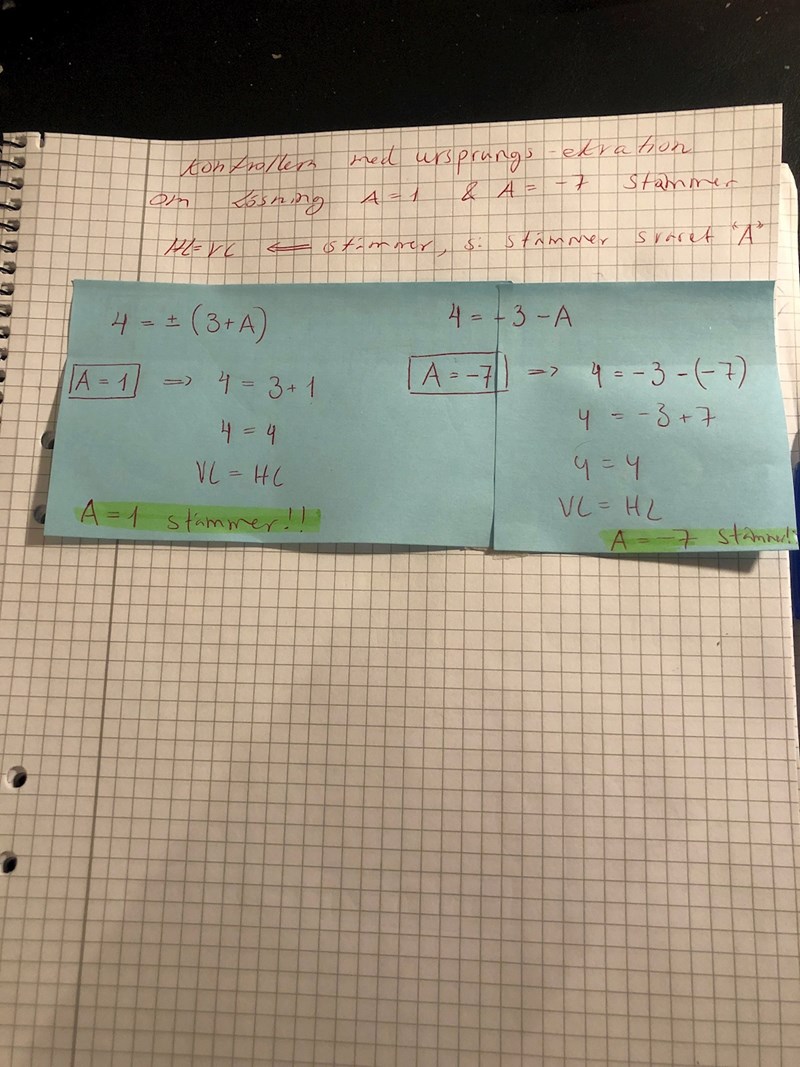 Kontrollera med ursprungs-ekvation
om lösning A = 1 & A = -7 stämmer
HL = VL ⇐ stämmer, så stämmer svaret "A"
4 = ± (3+A)
A = 1 ⇒ 4 = 3+1
4 = 4
VL = HL
A = 1 stämmer!!
4 = -3 - A
A = -7 ⇒ 4 = -3 - (-7)
4 = -3 + 7
4 = 4
VL = HL
A = -7 stämmer!